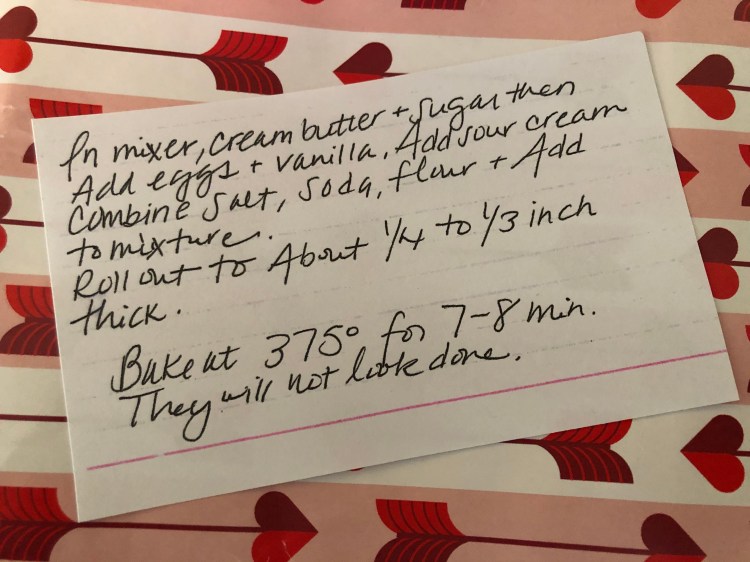 In mixer, cream butter + sugar then
Add eggs + vanilla. Add sour cream
Combine salt, soda, flour + Add
to mixture.
Roll out to About 1/4 to 1/3 inch
thick.
Bake at 375° for 7-8 min.
They will not look done.